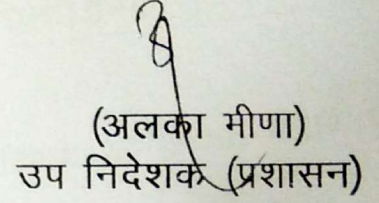 (अलका मीणा)
उप निदेशक (प्रशासन)